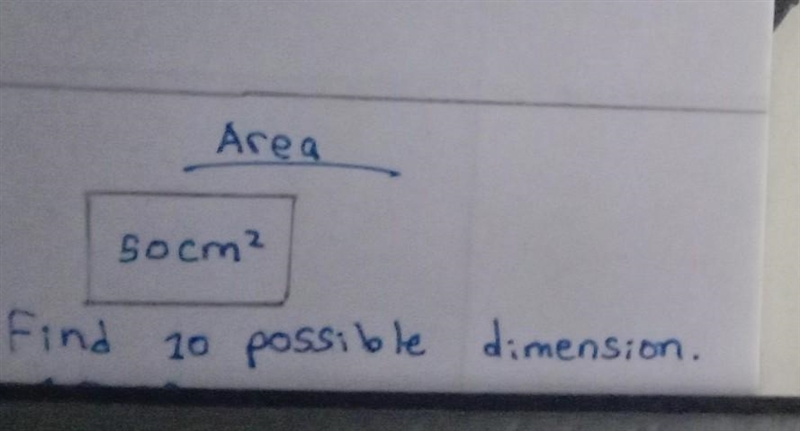 Area
50cm²
Find 10 possible dimension.